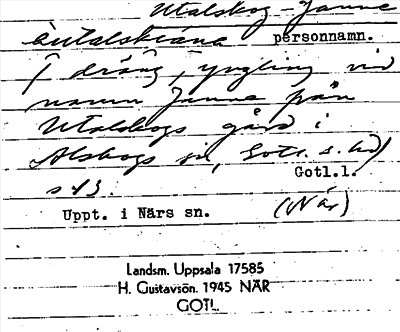 Utalskog-Janne
personnamn.
dräng, yngling vid
namn Janne från
Utalskogs gård i
Alskogs sn, Gotl. s. hd)
Gotl.l.
s 43.
Uppt. i Närs sn.
(När)
Landsm. Uppsala 17585
H. Gustavsön. 1945 NÄR
GOTL.